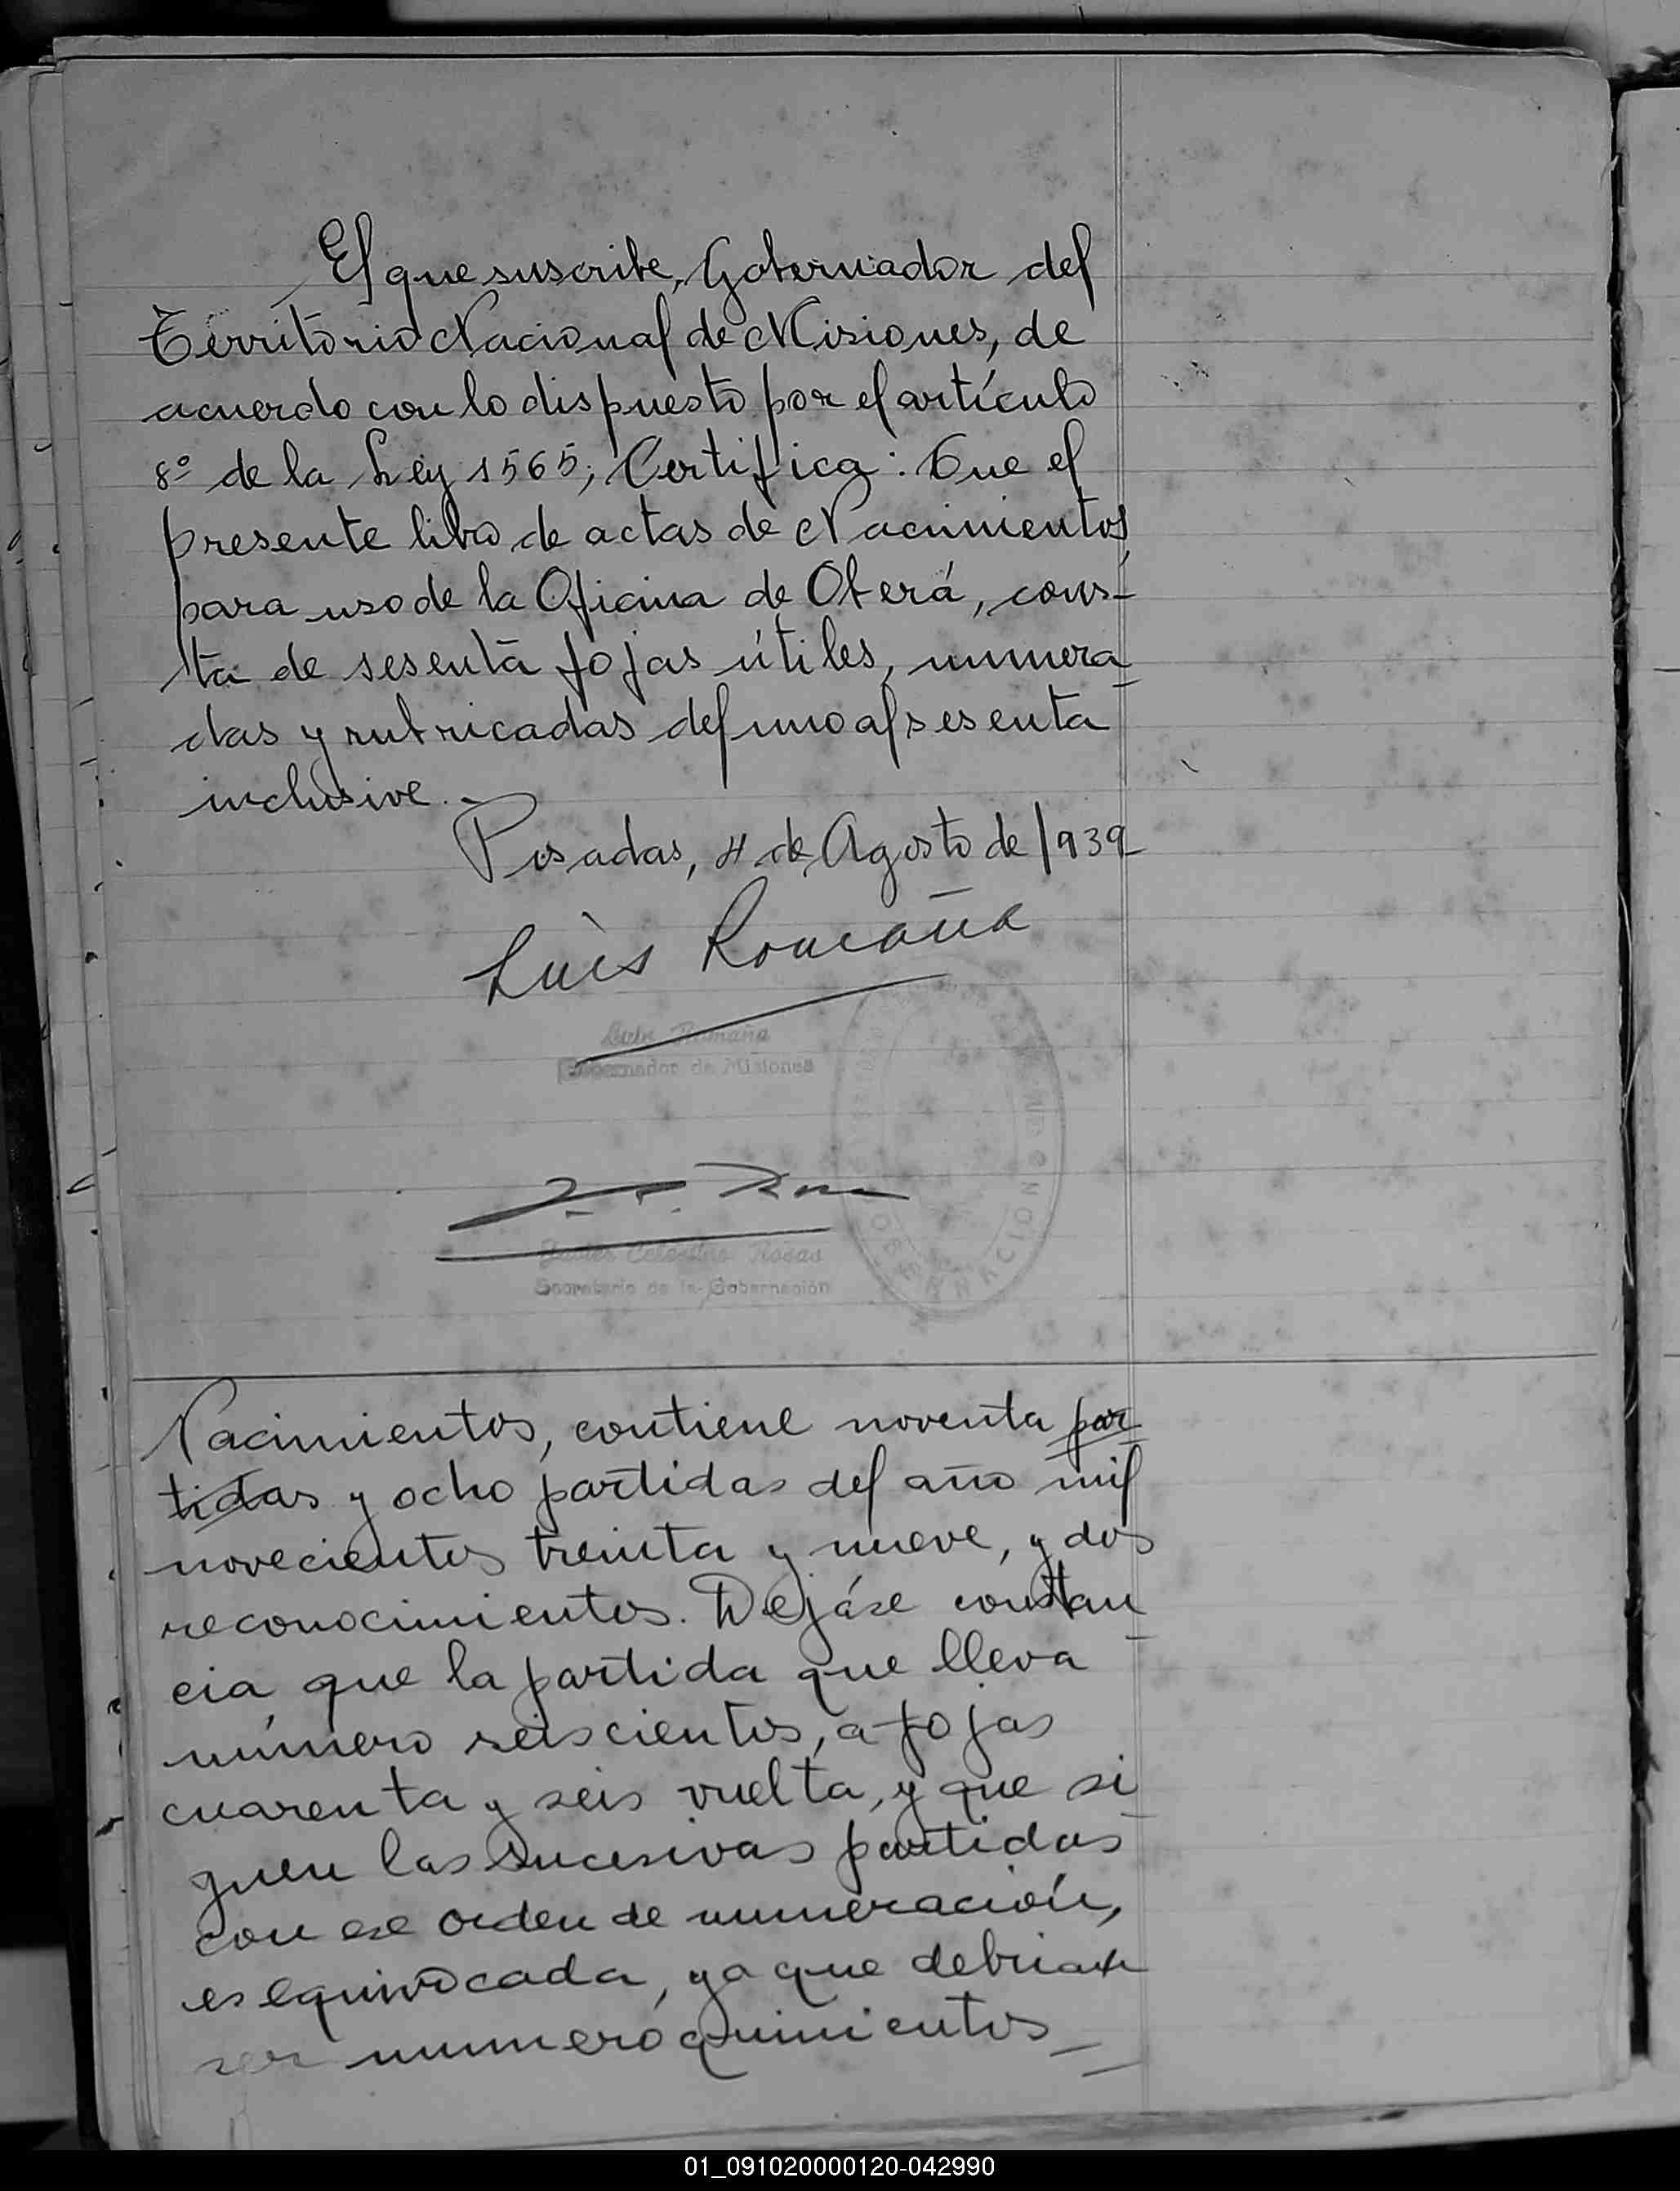 El que suscribe, Gobernador del
Territorio Nacional de Misiones, de
acuerdo con lo dispuesto por el artículo
8º de la Ley 1565; Certifica: Que el
presente libro de actas de Nacimientos,
para uso de la Oficina de Oberá, cons-
ta de sesenta fojas útiles, numera-
das y rubricadas del uno al sesenta
inclusive.-
Posadas, 4 de Agosto de 1939
Luis Romaña
Luis Romaña
Gobernador de Misiones
Rosas
Secretario de la Gobernación
GOBERNACION
Nacimientos, contiene noventa par
tidas y ocho partidas del año mil
novecientos treinta y nueve, y dos
reconocimientos. Dejáse constan
cia que la partida que lleva
número seiscientos, a fojas
cuarenta y seis vuelta, y que si
guen las sucesivas partidas
con ese orden de numeración,
es equivocada, ya que debria
ser numero quinientos
01_091020000120-042990